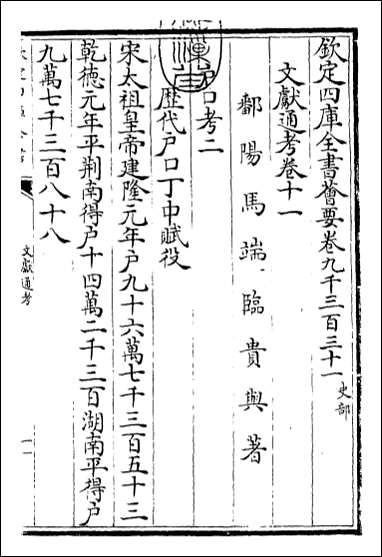 欽定四庫全書薈要卷九千三百三十一 史部
文獻通考卷十一
鄱陽馬端臨貴與著
戸口考二
歴代戸口丁中賦役
宋太祖皇帝建隆元年戸九十六萬七千三百五十三
乾德元年平荆南得戸十四萬二千三百湖南平得戸
九萬七千三百八十八
文獻通考
一